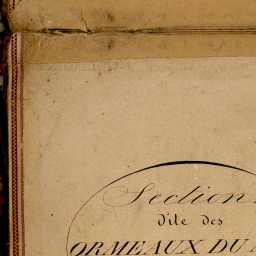 Section
dite des
ORMEAUX DU